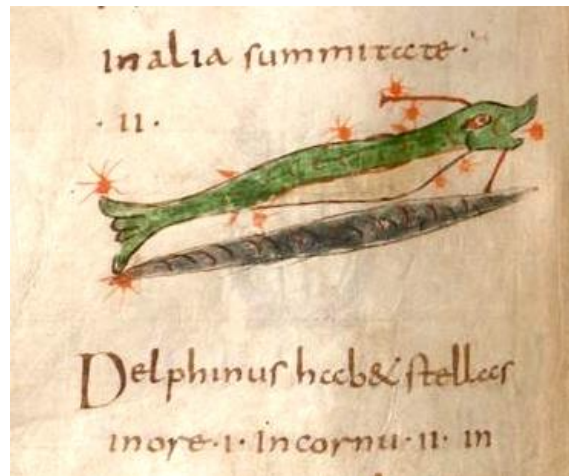 in alia summitate·
·II·
Delphinus hab& stellas
in ore·I·In cornu·II· in